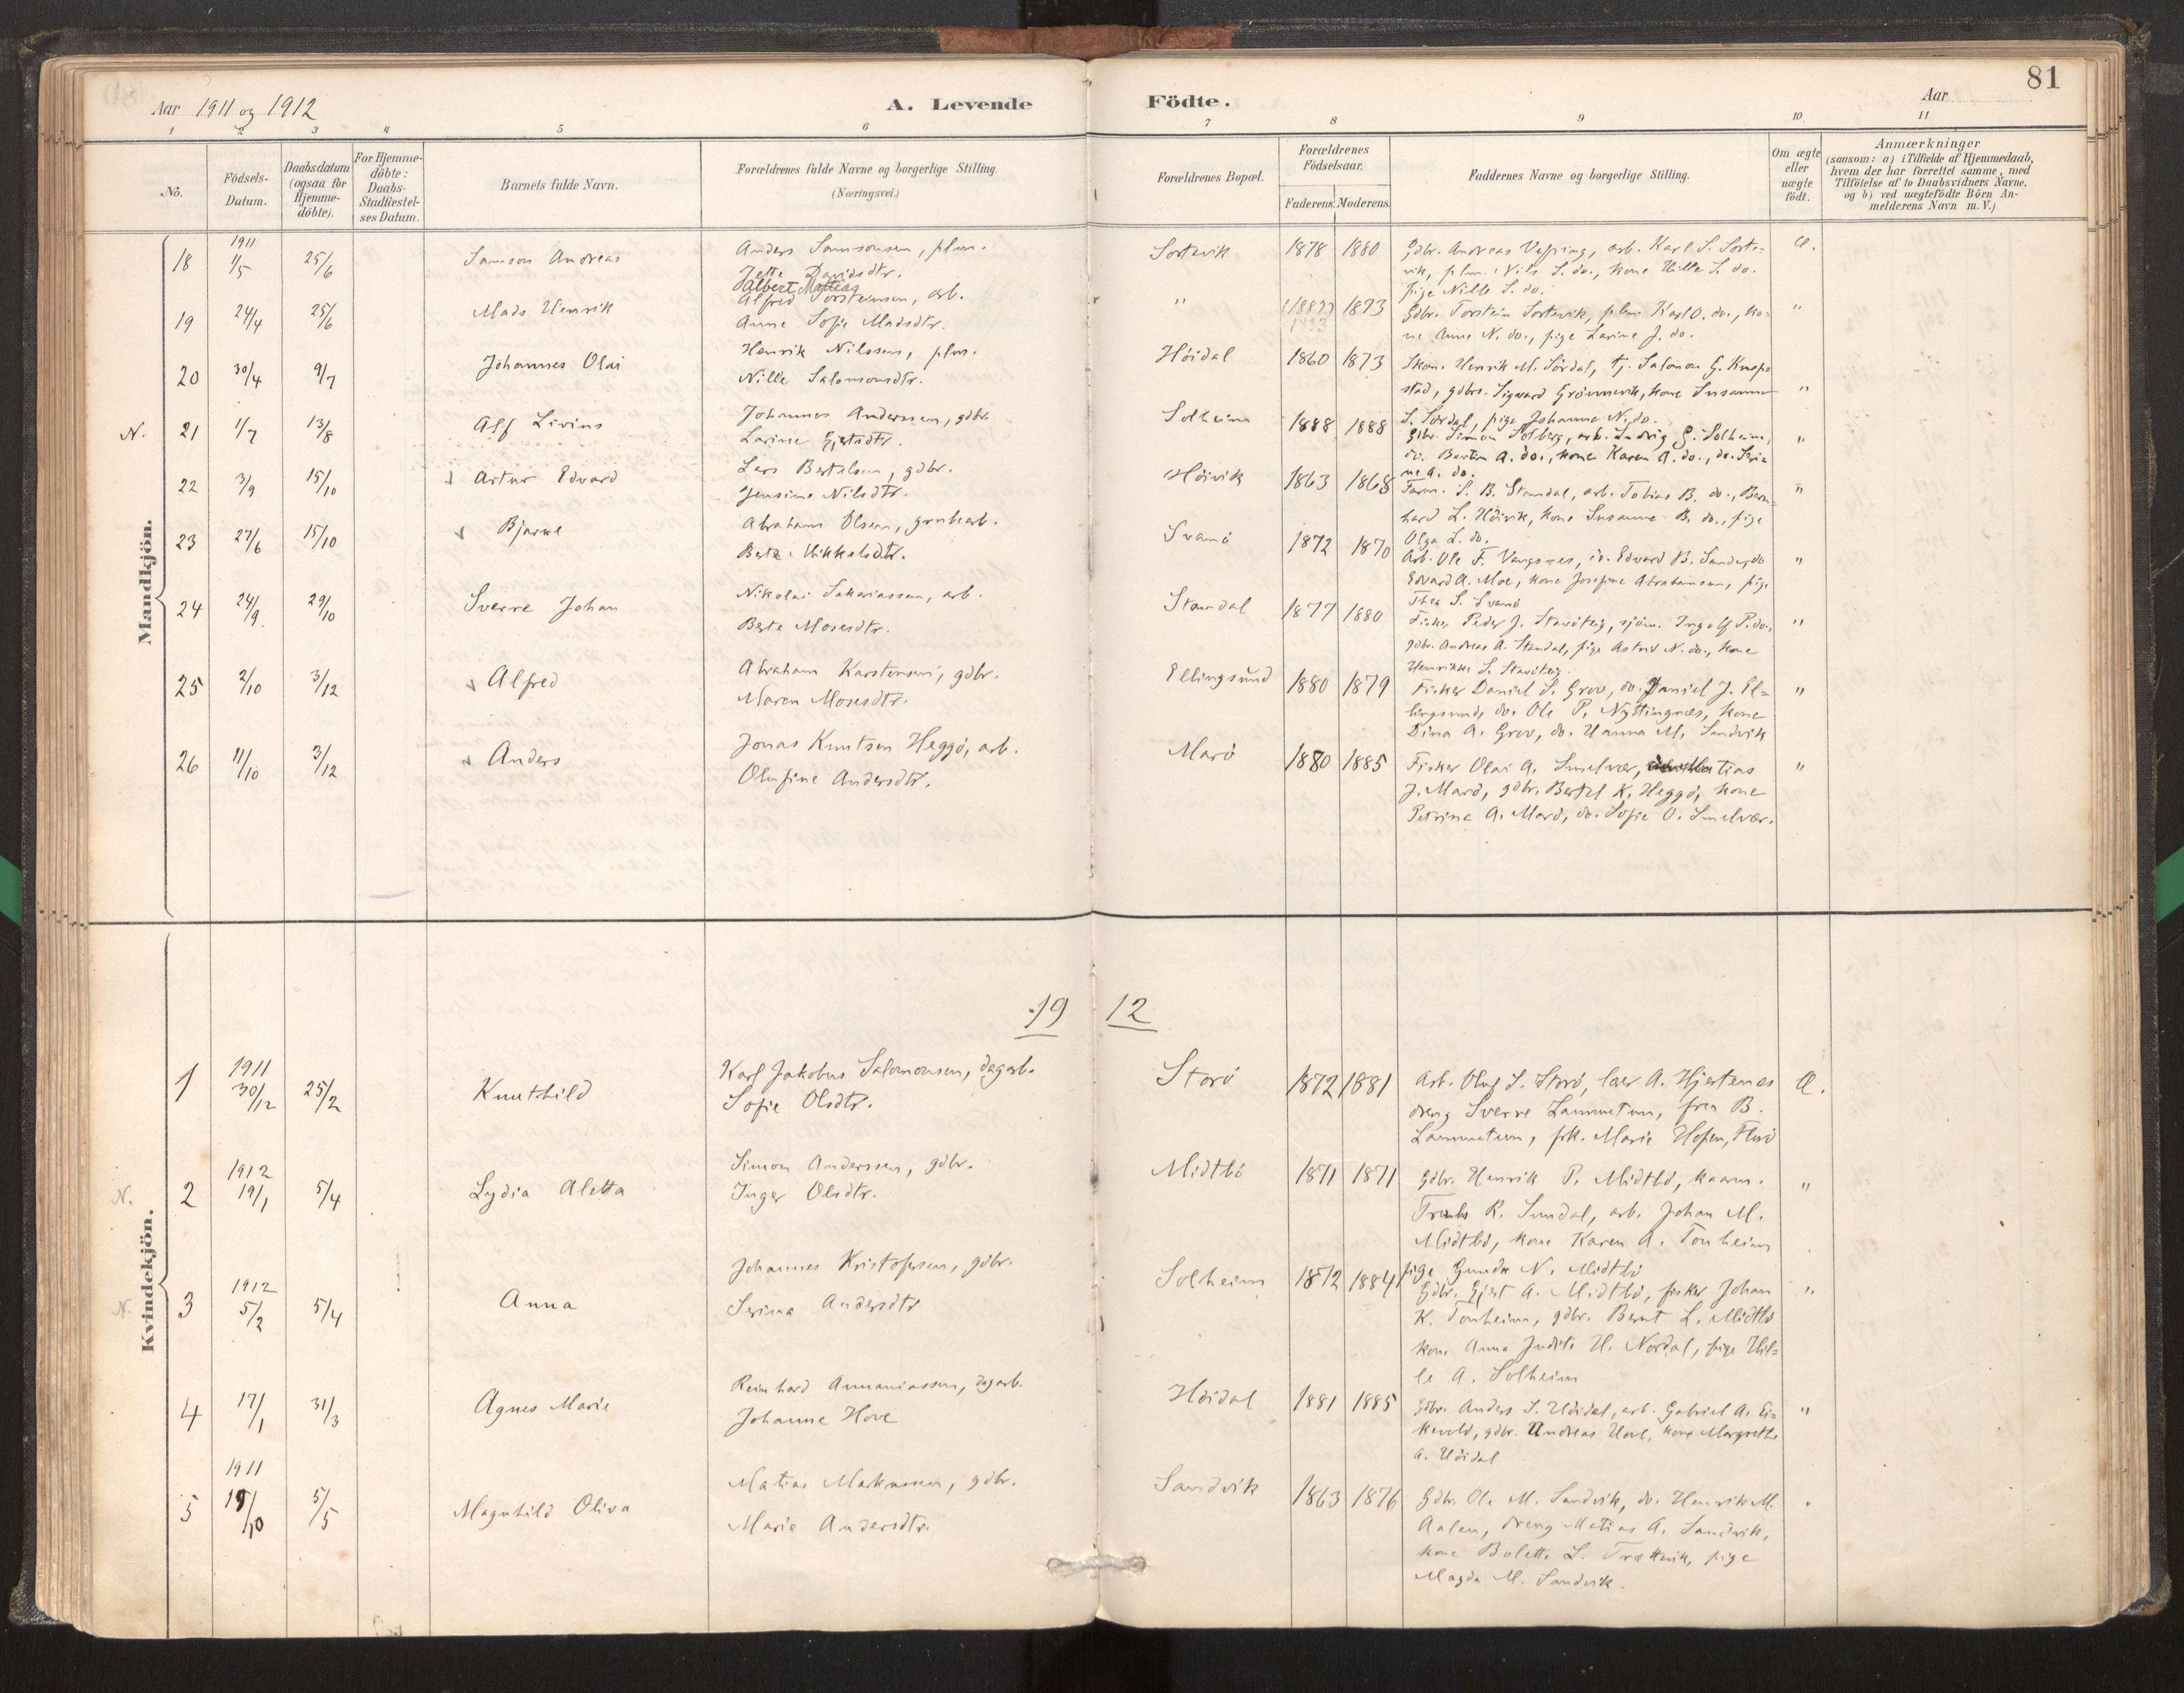 81
Aar 1911 og 1912
A. Levende Födte.
Aar
1 2 3 4 5 6 7 8 9 10 11
No.
Födsels-Datum.
Daabsdatum (ogsaa for Hjemme-döbte).
For Hjemme-döbte: Daabs-Stadfæstel-ses Datum.
Barnets fulde Navn.
Forældrenes fulde Navne og borgerlige Stilling.
(Næringsvei.)
Forældrenes Bopæl.
Forældrenes Födselsaar.
Faderens. Moderens.
Faddernes Navne og borgerlige Stilling.
Om ægte eller uægte födt.
Anmærkninger
(saasom: a) i Tilfælde af Hjemmedaab,
hvem der har forrettet samme, med
Tilföielse af to Daabsvidners Navne,
og b) ved uægtefödte Börn An-
melderens Navn m. V.)
Mandkjön.
18 1911 1/5 25/6 Samson Andreas Anders Samsonsen, plm. Sortevik 1878 1880 Gdbr. Andreas Vasping, arb. Karl S. Sorte-
Jette Davidsdtr. vik, plm. Nils S. do., kone Hille S. do.
pige Nille S. do.
Dalbert Mattias
19 24/4 25/6 Mads Henrik Alfred Torsteinsen, arb. " (1882) 1873 Gdbr. Torstein Sortevik, plm Karl O. do., ko-
Anne Sofie Madsdtr. ne Anne N. do., pige Larine J. do.
20 30/4 9/7 Johannes Olai Henrik Nilssen, plm. Höidal 1860 1873 Skom. Henrik M. Sördal, tj. Salomon G. Knap-
Nille Salomonsdtr. stad, gdbrs. Sigvard Grönnevik, kone Susanna "
S. Sördal, pige Johanne N. do.
N. 21 1/7 13/8 Alf Livius Johannes Anderssen, gdbr. Solheim 1888 1888 Gdbr. Simon Solberg, arb. Ludvig G. Solheim, "
Larine Gjertsdtr. do. Bertin A. do., kone Karen A. do., do. Seri-
ne A. do.
22 3/9 15/10 Artur Edvard Lars Bertelsen, gdbr. Höivik 1863 1868 Farm. S. B. Standal, arb. Tobias B. do., Bern- "
Jensine Nilsdtr. hard L. Höivik, kone Susanne B. do., pige
Olga L. do.
23 27/6 15/10 Bjarne Abraham Olsen, grubearb. Svanö 1872 1870 Arb. Ole F. Vangsnes, do. Edvard B. Sande, do "
Berte Mikkelsdtr. Edvard A. Moe, kone Josefine Abrahamsen, pige
Thea S. Svanö
24 24/9 29/10 Sverre Johan Nikolai Sakariassen, arb. Standal 1877 1880 Fisker Peder J. Stavöteig, sjöm. Ingolf P. do., "
Berte Mosesdtr. gdbr. Andreas A. Standal, pige Astrid N. do., kone
Henrikke S. Stavöteig
25 2/10 3/12 Alfred Abraham Karstensen, gdbr. Ellingsund 1880 1879 Fisker Daniel S. Grov, do. Daniel J. El- "
Maren Mosesdtr. lingsund, do. Ole P. Nyttingnes, kone
Dina A. Grov, do. Hanna M. Sandvik
26 11/10 3/12 Anders Jonas Knutsen Heggö, arb. Marö 1880 1885 Fisker Olai A. Smelvær, Matias "
Olufine Andersdtr. J. Marö, gdbr. Bertel K. Heggö, kone
Petrina A. Marö, do. Sofie O. Smelvær.
1912
Kvindekjön.
1 1911 30/12 25/2 Knuthild Karl Jakobus Salomonsen, dagarb. Storö 1872 1881 Arb. Oluf S. Storö, lær A. Hjertenes Æ.
Sofie Olsdtr. dreng Sverre Lammetun, fru B.
Lammetun, frk. Marie Hofen, Florö
N. 2 1912 19/1 5/4 Lydia Aletta Simon Anderssen, gdbr. Midtbö 1871 1871 Gdbr. Henrik P. Midtbö, kaarm. "
Inger Olsdtr. R. Sundal, arb. Johan M.
Midtbö, kone Karen A. Tonheim
pige Gunda N. Midtbö
N. 3 1912 5/2 5/4 Anna Johannes Kristofersen, gdbr. Solheim 1872 1884 Gdbr. Gjert A. Midtbö, fisker Johan "
Serina Andersdtr K. Tonheim, gdbr. Bernt L. Midtbö
kone Anna Judite H. Nordal, pige Hil-
le A. Solheim
4 17/1 31/3 Agnes Marie Reinhard Annaniassen, dagarb. Höidal 1881 1885 Gdbr. Anders S. Höidal, arb. Gabriel A. Ei- "
Johanne Hove kevold, gdbr. Andreas Hove, kone Margrethe
A. Höidal
5 1911 15/10 5/5 Magnhild Oliva Matias Markussen, gdbr. Sandvik 1863 1876 Gdbr. Ole M. Sandvik, do. Henrik M. "
Marie Andersdtr. Aalen, dreng Matias A. Sandvik,
kone Bolette L. Trættevik, pige
Magda M. Sandvik.